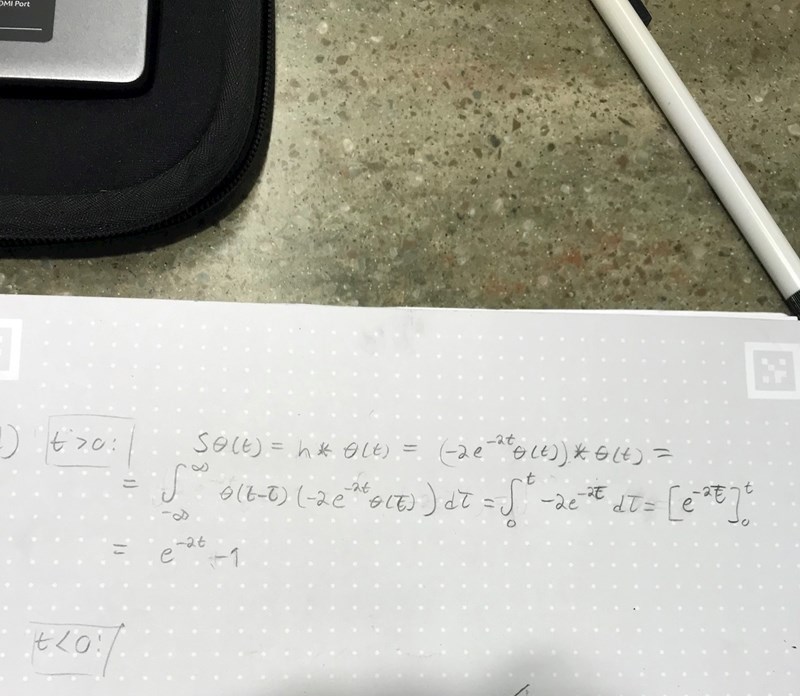 DMI Port
) t>0: Sθ(t) = h * θ(t) = (-2e^{-2t}θ(t)) * θ(t) =
= ∫_{-∞}^{∞} θ(t-τ)(-2e^{-2t}θ(τ))dτ = ∫_0^t -2e^{-2τ} dτ = [e^{-2τ}]_0^t
= e^{-2t} -1
t<0: